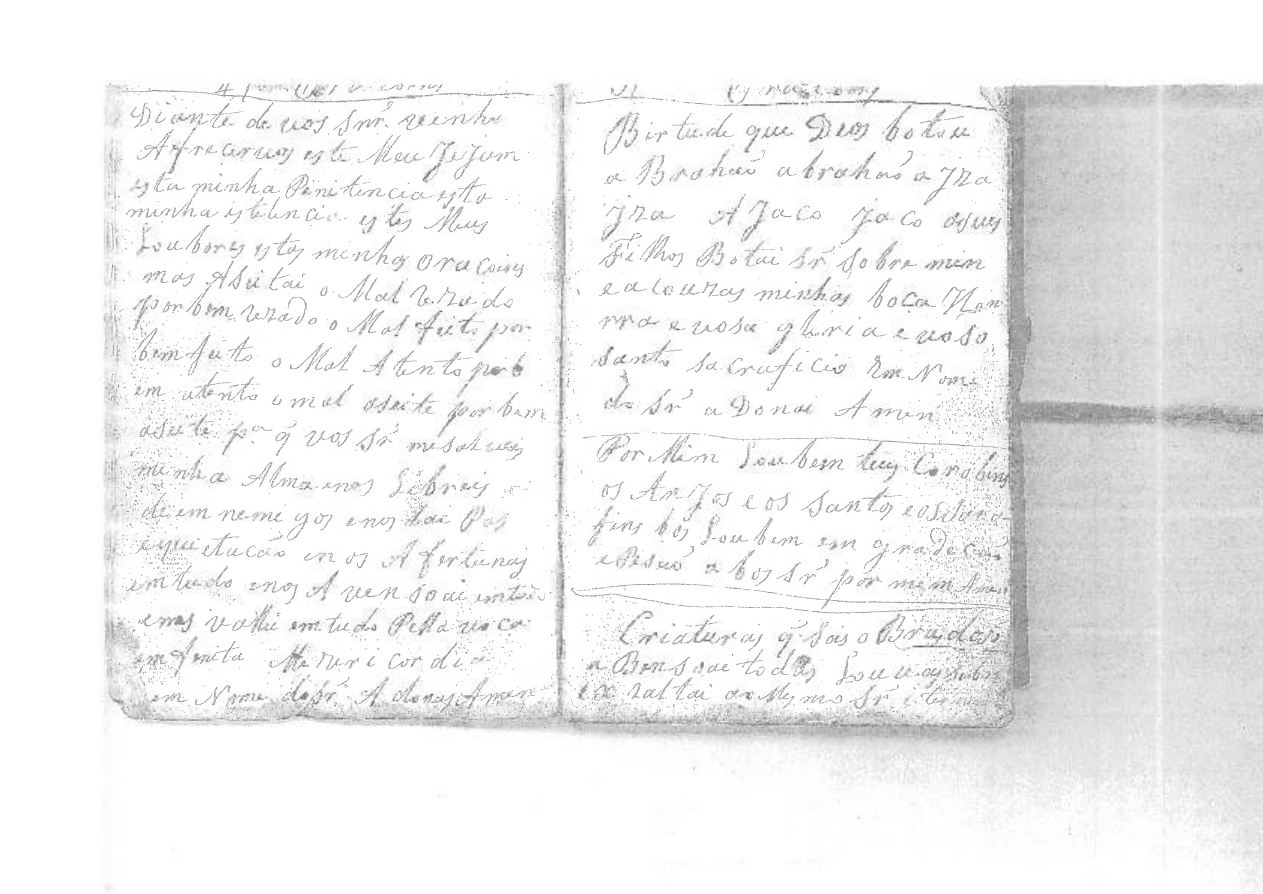 Diante de vos Snr. veinho
Afrecervos este Meu JeJum
esta minha Penitencia esta
minha istilencia estes Meus
Loubores estas minhas oracoives
mas Aseitai o Mal rezado
por bem rezado o Mal feito por
bem feito o Mal Atento por b
em atento o mal aseite por bem
aseite pª q̃ vos Sr̃ me salveis
minha Alma enos Libreis
de em neme gos enos dai Pas
equietacão enos Afertunas
em tudo enos A vensoai
enos valhi em tudo Pella vosa
em finita Mezuricordia
em Nome do Sr̃ Adonay Amen
Birtude que Deos botou
a Brahaõ abrahaõ a Jza
Jza A Jaco Jaco
Filhos Botai Sr̃ Sobre mim
minhas boca Hon
rra e vosa gloria e voso
santo sacraficio Em Nome
do Sr̃ a Donai Amen
Por Mim Loubem teus Corobins
os AnJos e os Santos
fins bos Loubem em
a bos Sr̃ por mem Amen
Criaturas q̃ Sois o
a Bensoai todas
ao Mesmo Sr̃